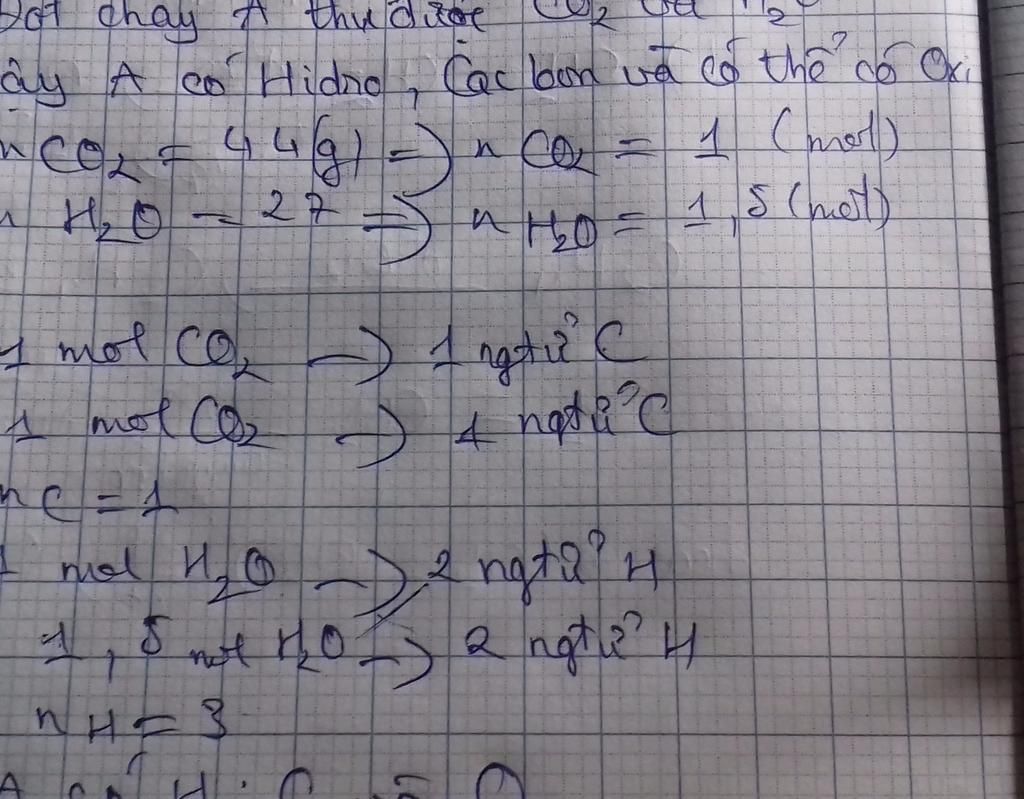 Đốt cháy A thu được CO2 và H2O
ậy A có Hidro, Cacbon và có thể có Oxi
n CO2 = 44(g) => n CO2 = 1 (mol)
H2O = 27 => n H2O = 1,5 (mol)
1 mol CO2 -> 1 ngtử C
1 mol CO2 -> 1 ngtử C
nC = 1
1 mol H2O -> 2 ngtử H
1,5 mol H2O -> 2 ngtử H
nH = 3
A có H